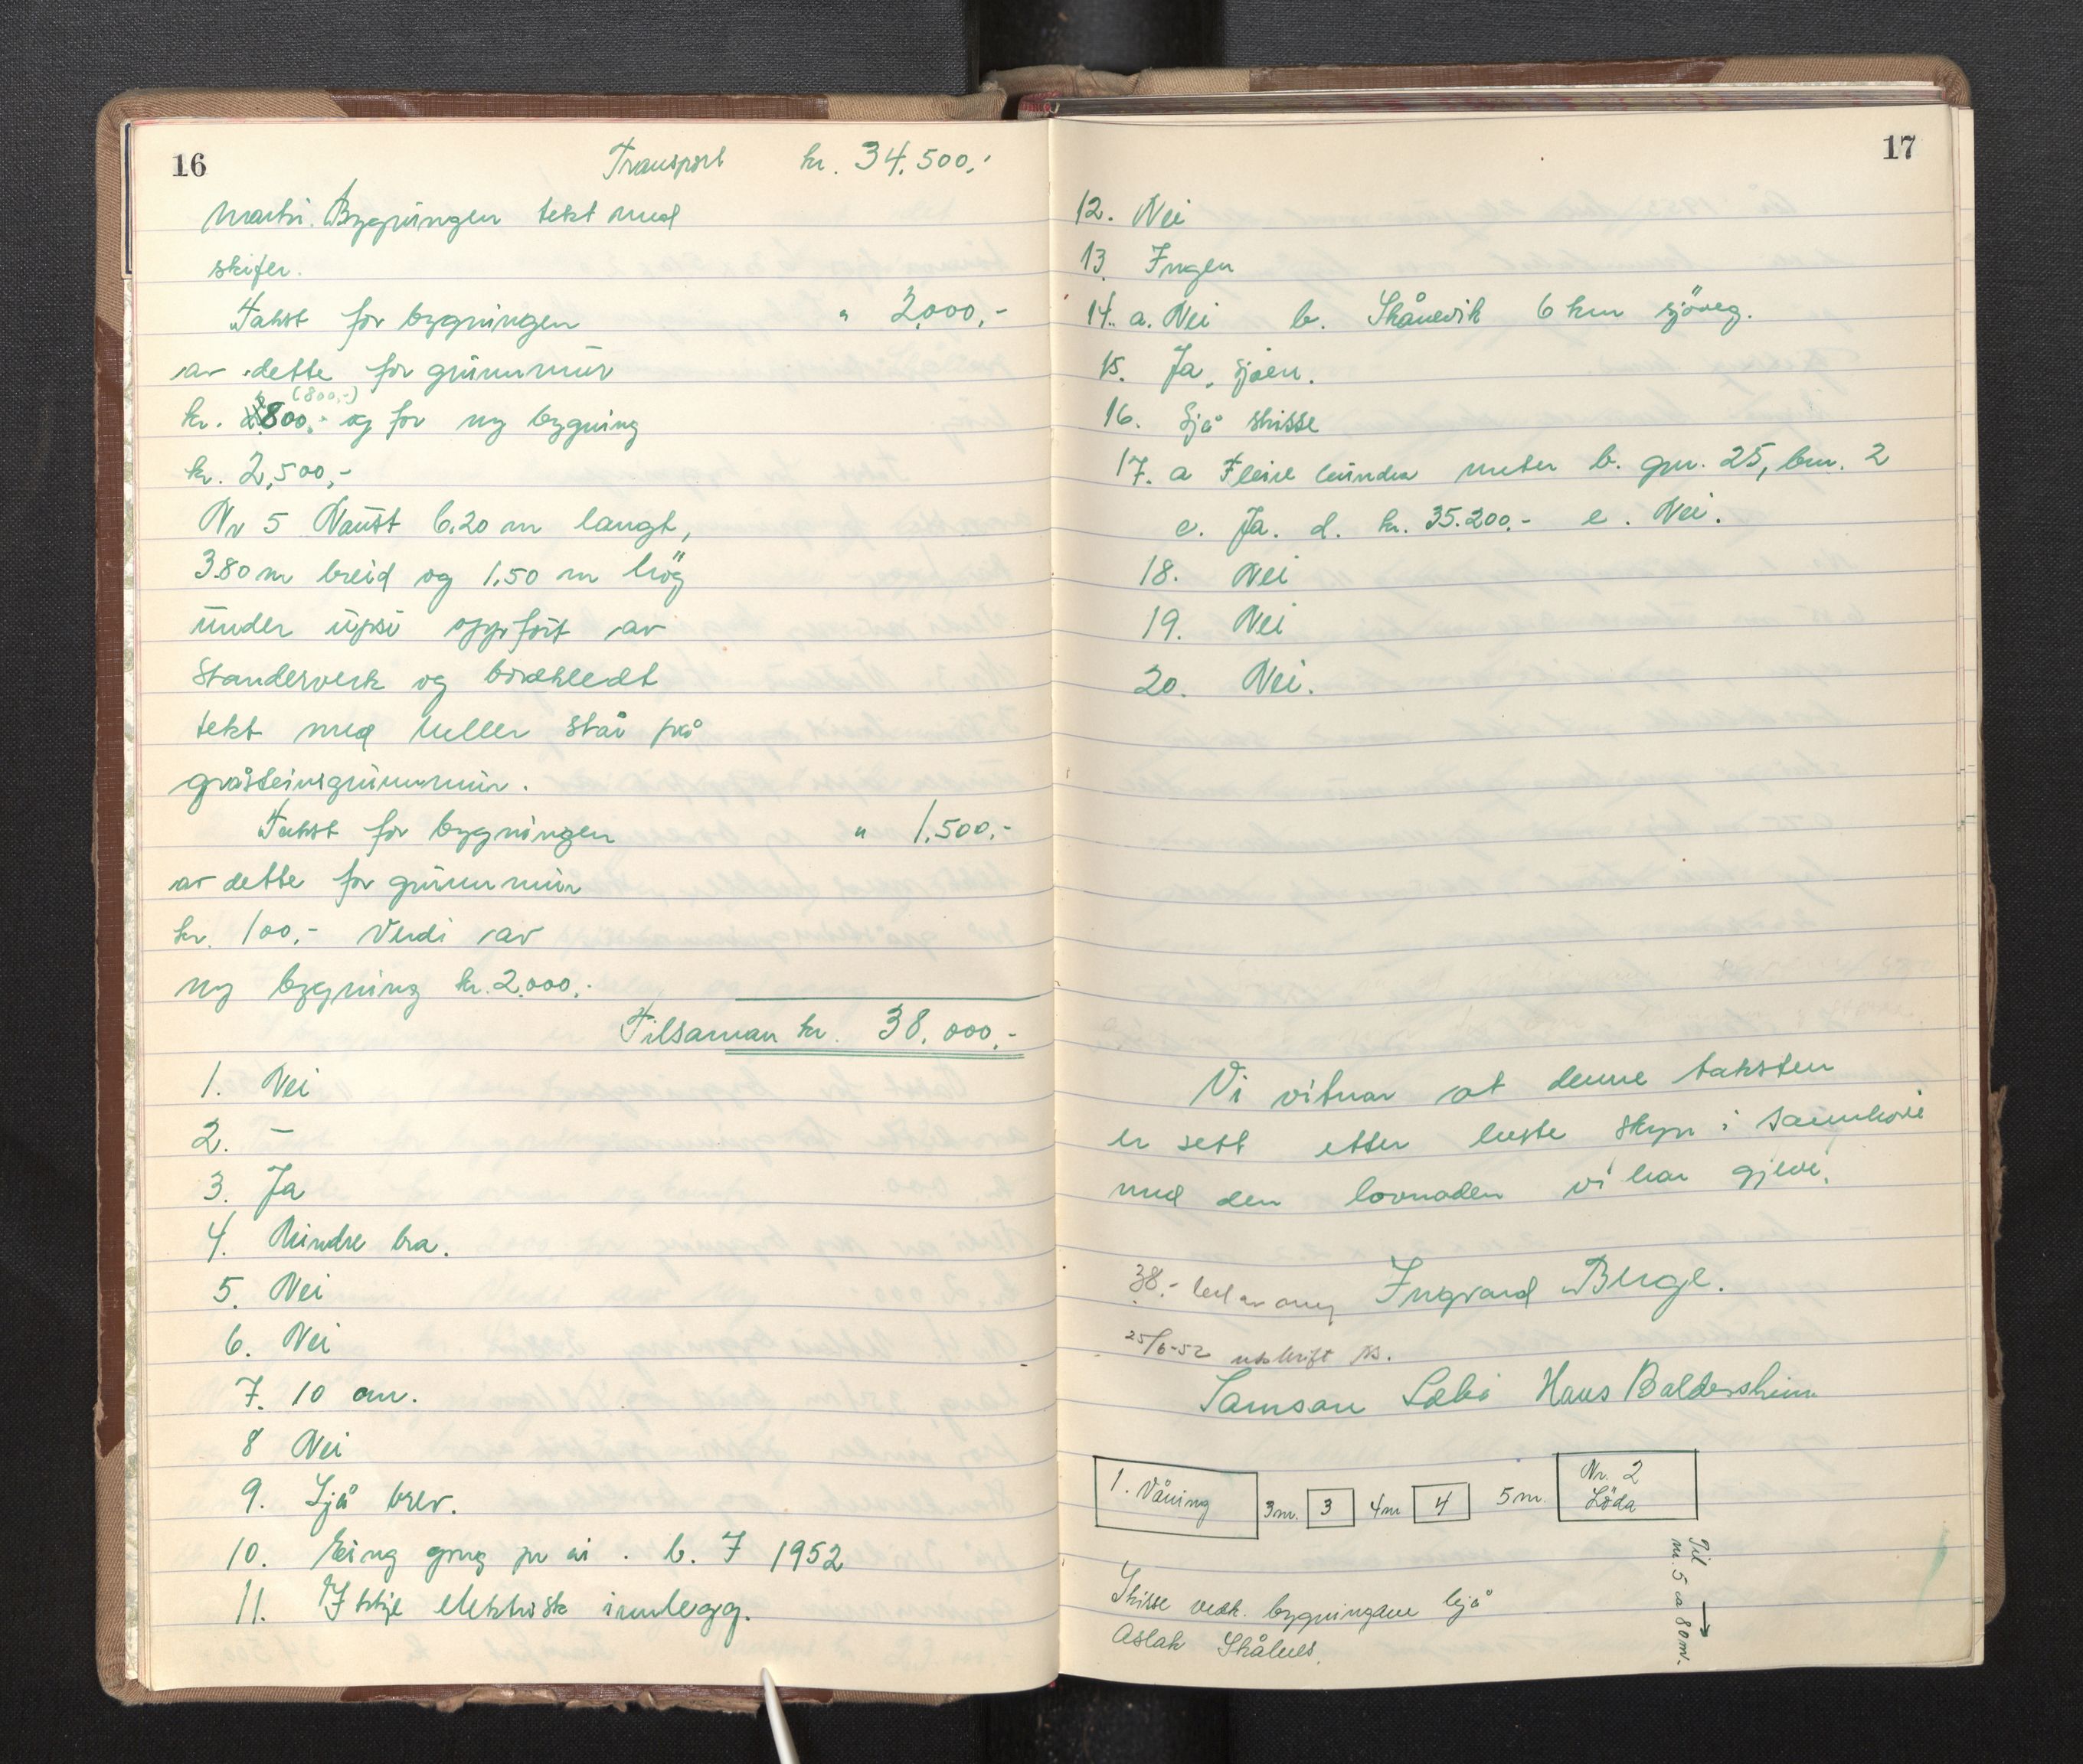 16
Transport kr. 34.500,-
mark. Bygningen tekt med
skifer.
Takst for bygningen " 2.000,-
av dette for grunnmur
(800,-)
kr. 800,- og for ny bygning
kr. 2,500,-
Nr 5 Naust 6.20 m langt,
3.80 m breid og 1,50 m hög
under upsi oppfört av
Standerverk og bordkledt
tekt med heller står på
gråsteinsgrunnmur.
Takst for bygningen " 1.500,-
av dette for grunnmur
kr. 100,- Verdi av
ny bygning kr. 2.000,-
Tilsaman kr. 38.000,-
1. Nei
2. —
3. Ja
4. Mindre bra.
5. Nei
6. Nei
7. 10 cm.
8 Nei
9. Sjå brev.
10. Eing gong pr år. b. 7 1952
11. Ikkje elektrisk innlegg.
17
12. Nei
13. Ingen
14. a. Nei b. Skånevik 6 km sjöveg.
15. Ja, sjöen.
16. Sjå skisse
17. a Fleire hundre meter b. gnr. 25, bnr. 2
c. Ja. d. kr. 35.200,- e. Nei.
18. Nei
19. Nei
20. Nei.
Vi vitnar at denne taksten
er sett etter beste skyn i samhøve
med den lovnaden vi har gjeve.
38.- Ingvard Berge.
25/6-52 utskrift
Samson Sæbö Hans Baldersheim
1. Våning 3m. 3 4m 4 5m. Nr. 2 Löda
Til nr. 5 ca 80m.
Skisse vedk. bygningane hjå
Aslak Skålnes.